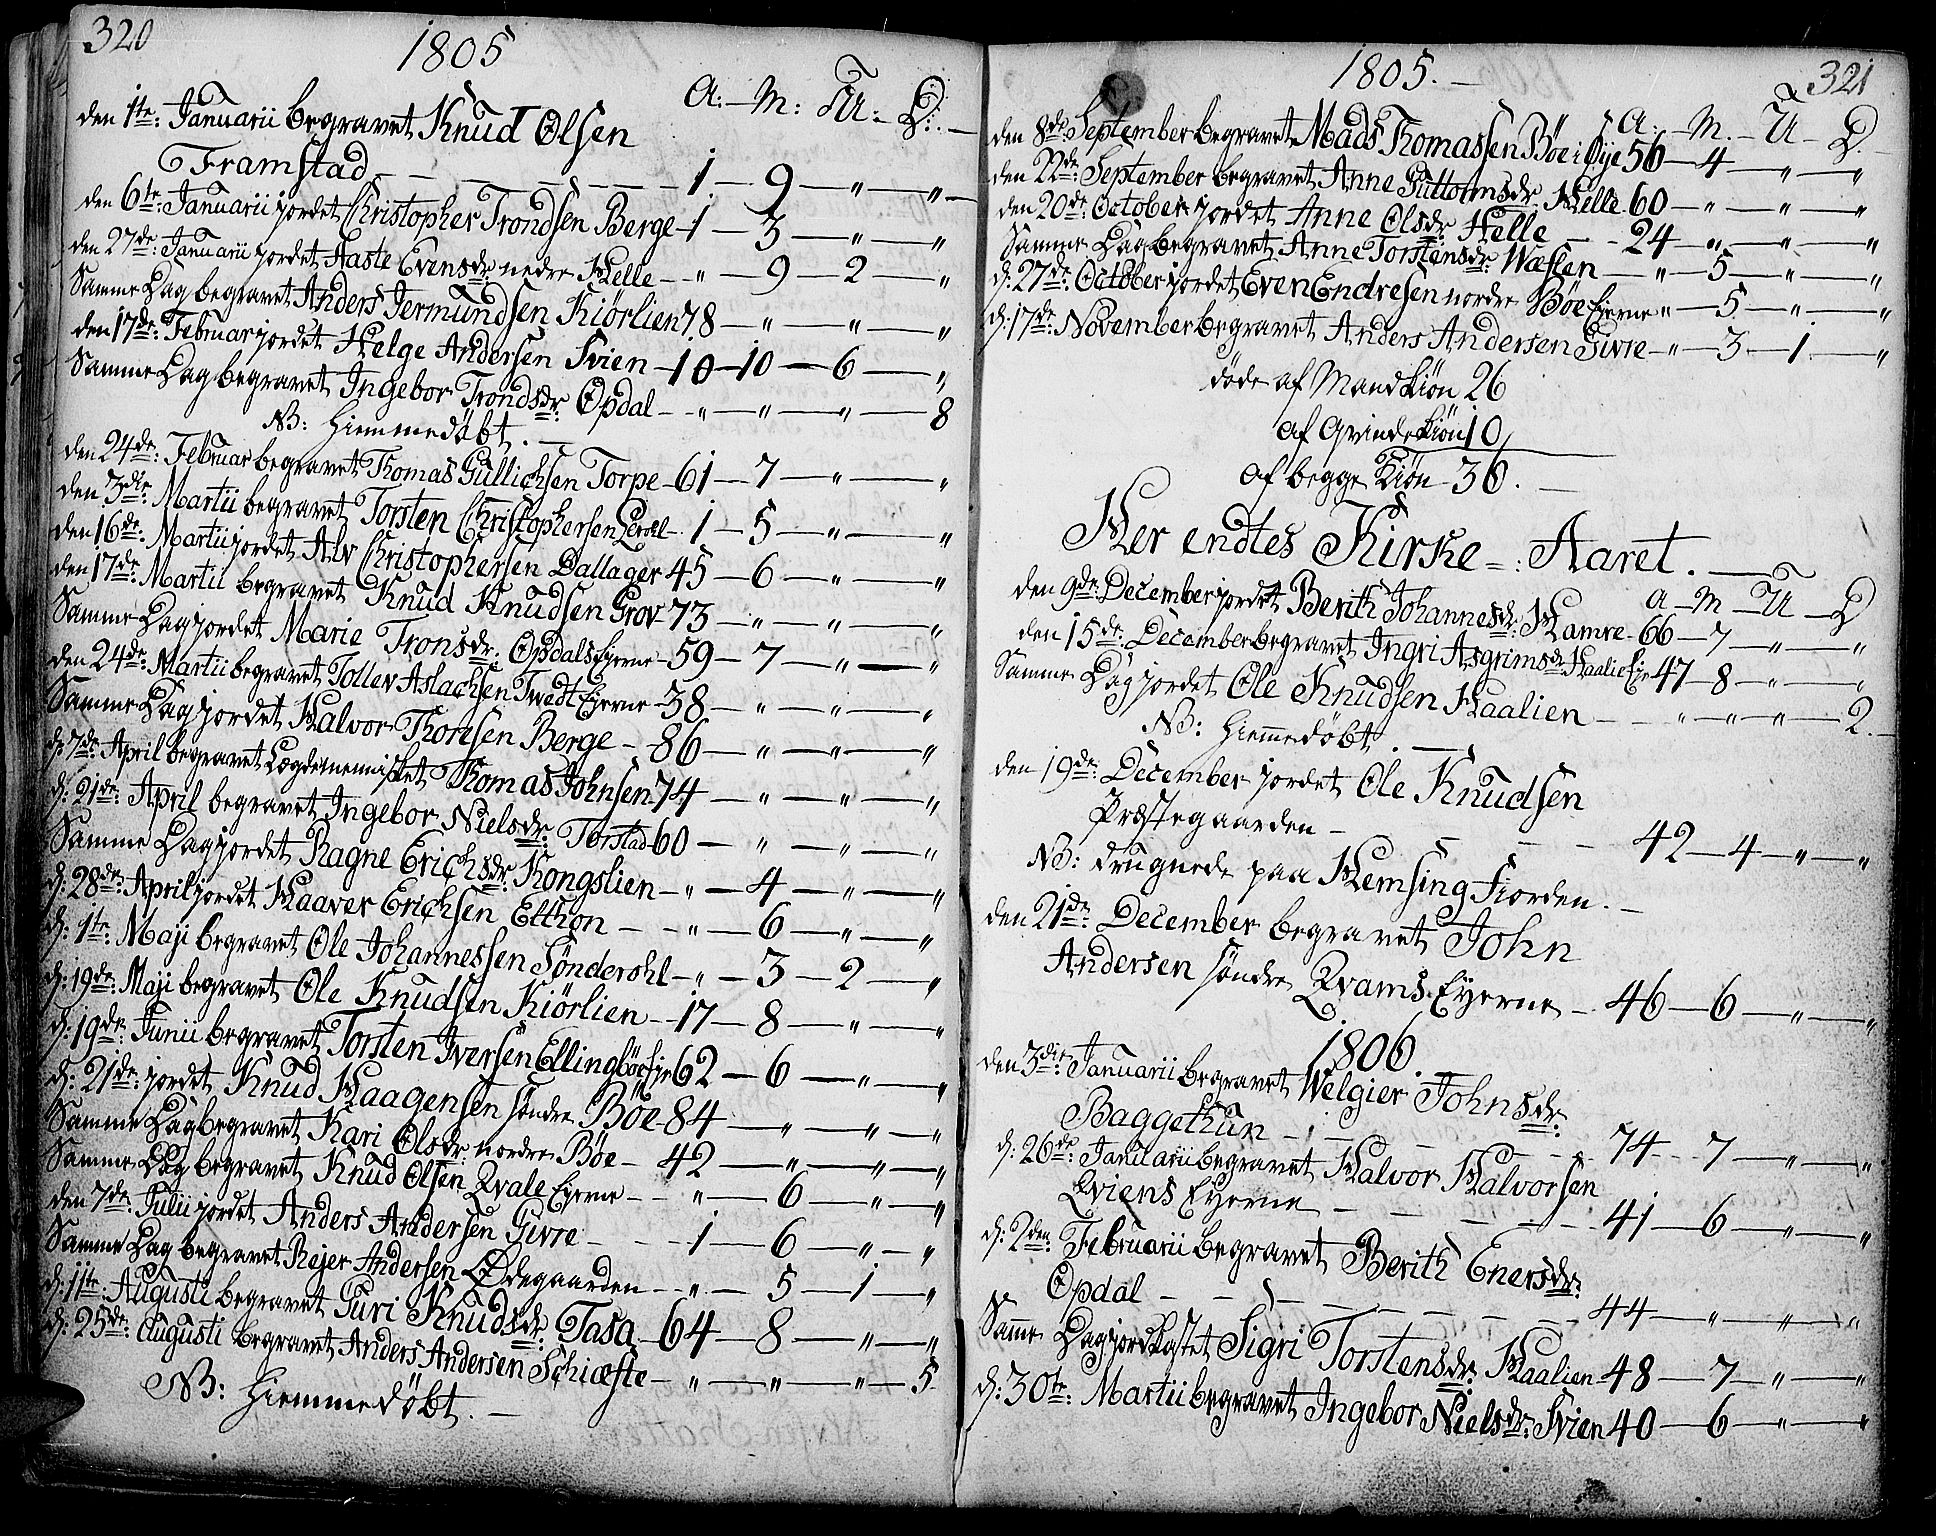 320
1805
A: — M: — U: — D: —
den 1te: Januarii begravet Knud Olsen
Framstad — 1 — 9 — " — "
den 6te: Januarii jordet Christopher Trondsen Berge — 1 — 3 — " — "
den 27de: Januarii jordet Aaste Evensdr: nedre Helle — " — 9 — 2 — "
Samme Dag begravet Anders Jermundsen Kiörlien 78 — " — " — "
den 17de: Februar jordet Helge Andersen Svien — 10 — 10 — 6 — "
Samme Dag begravet Ingebor Trondsdr: Opdal — " — " — " — 8
NB: Hiemmedöbt. —
den 24de: Februar begravet Thomas Gullichsen Torpe — 61 — 7 — " — "
den 3die: Martii begravet Torsten Christophersen — 1 — 5 — " — "
den 16de: Martii jordet Alv Christophersen Dallager 45 — 6 — " — "
den 17de: Martii begravet Knud Knudsen Grov 73 — " — " — "
Samme Dag jordet Marie Tronsdr: Opdals Ejerne — 59 — 7 — " — "
den 24de: Martii begravet Tollev Aslachsen Twedt Ejerne — 38 — " — " — "
Samme Dag jordet Halvor Thoresen Berge — 86 — " — " — "
d: 7de: April begravet Lægdemennisket Thomas Johnsen 74 — " — " — "
d: 21de: April begravet Ingebor Nielsdr: Torstad 60 — " — " — "
Samme Dag jordet Ragne Erichsdr: Kongslien — " — 4 — " — "
d: 28de: April jordet Haaver Erichsen Etthon — " — 6 — " — "
d: 1te: Maji begravet Ole Johannessen Sönderohl — " — 3 — 2 — "
d: 19de: Maji begravet Ole Knudsen Kiörlien — 17 — 8 — " — "
d: 19de: Junii begravet Torsten Iversen Ellingböe Eje 62 — 6 — " — "
d: 21de: jordet Knud Haagensen söndre Böe 84 — " — " — "
Samme Dag begravet Kari Olsdr: nordre Böe — 42 — " — " — "
Samme Dag begravet Knud Olsen Qvale Ejerne — " — 6 — " — "
den 7de: Julii jordet Anders Andersen Givre — 1 — 6 — " — "
Samme Dag begravet Rejer Andersen Ødegaarden — " — 5 — 1 — "
d: 11te: Augusti begravet Guri Knudsdr: Tasa — 64 — 8 — " — "
d: 25de: Augusti begravet Anders Andersen Schiæfte — " — " — " — 5
NB: Hiemmedöbt. —
1805. —
321
A: — M. — U — D. —
den 8de: September begravet Mads Thomassen Böe i Øije 56 — 4 — " — "
den 22de: September begravet Anne Guttormsdr: Helle 60 — " — " — "
den 20de: October jordet Anne Olsdr: Helle — 24 — " — " — "
Samme Dag begravet Anne Torstensdr: Wæsten — " — 5 — " — "
d: 27de: October jordet Even Endresen nordre Böe Ejerne " — 5 — " — "
d: 17de: November begravet Anders Andersen Givre — " — 3 — 1 — "
döde af Mandkiön 26
af Qvindekiön 10
af begge Kiön 36. —
Her endtes Kirke-Aaret. —
A — M — U — D
den 9de: December jordet Berith Johannesdr: Hamre — 66 — 7 — " — "
den 15de: December begravet Ingri Asgrimsdr: Haalie Eje 47 — 8 — " — "
Samme Dag jordet Ole Knudsen Haalien — " — " — " — 2. —
NB: Hiemmedöbt. —
den 19de: December jordet Ole Knudsen
Præstegaarden — 42 — 4 — " — "
NB: drugnede paa Hemsing Fiorden. —
den 21de: December begravet John
Andersen söndre Qvams Eyerne — 46 — 6 — " — "
1806.
den 3die: Januarii begravet Welgier Johnsdr:
Baggethun — 74 — 7 — " — "
d: 26de: Januarii begravet Halvor Halvorsen
Qviens Eyerne — 41 — 6 — " — "
d: 2den: Februarii begravet Berith Enersdr:
Opdal — 44 — " — " — "
Samme Dag jordkastet Sigri Torstensdr: Haalien 48 — 7 — " — "
d: 30te: Martii begravet Ingebor Nielsdr: Svien 40 — 6 — " — "